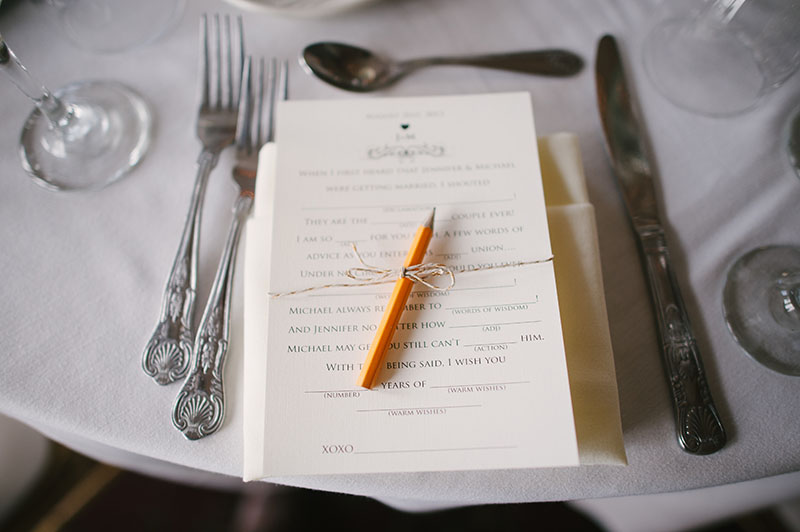 WHEN I FIRST HEARD THAT JENNIFER & MICHAEL
WERE GETTING MARRIED, I SHOUTED
(EXCLAMATION)
THEY ARE THE COUPLE EVER!
(ADJ)
I AM SO FOR YOU A FEW WORDS OF
(ADJ)
ADVICE AS YOU ENTER UNION....
(ADJ)
UNDER NO SHOULD YOU
(WORDS OF WISDOM)
MICHAEL ALWAYS REMEMBER TO !
(WORDS OF WISDOM)
AND JENNIFER NO MATTER HOW
(ADJ)
MICHAEL MAY GET YOU STILL CAN'T HIM.
(ACTION)
WITH BEING SAID, I WISH YOU
YEARS OF
(NUMBER) (WARM WISHES)
(WARM WISHES)
XOXO